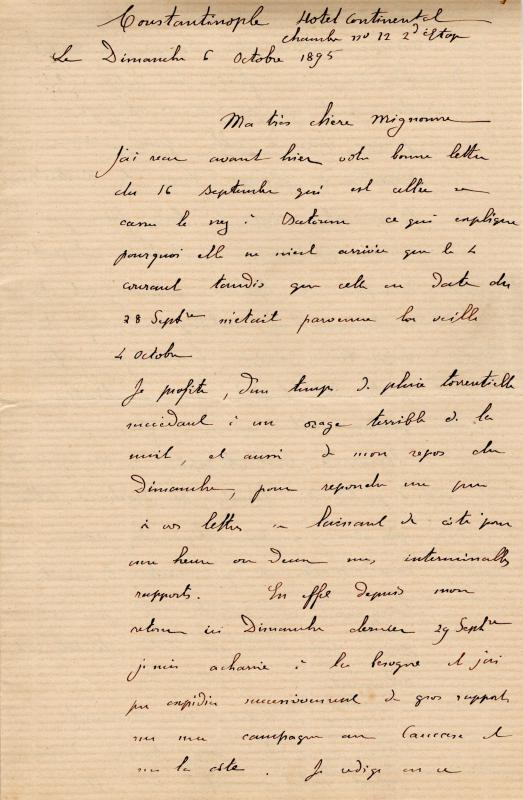 Constantinople Hotel Continental
chambre no 12 2d étage
Le Dimanche 6 Octobre 1895
Ma très chère Mignonne
J'ai reçu avant hier votre bonne lettre
du 16 Septembre qui est allée se
casser le nez à Batoum ce qui explique
pourquoi elle ne m'est arrivée que le 4
courant tandis que celle en date du
28 Septbre m'était parvenue la veille
4 octobre
Je profite, d'un temps de pluie torrentielle
succédant à un orage terrible de la
nuit, et aussi de mon repos du
Dimanche, pour répondre un peu
à vos lettres en laissant de côté pour
une heure ou deux mes interminables
rapports. En effet depuis mon
retour ici Dimanche dernier 29 Septbre
je suis acharné à la besogne et j'ai
pu expédier successivement de gros rapports
sur ma campagne au Caucase et
sur la côte. Je rédige en ce